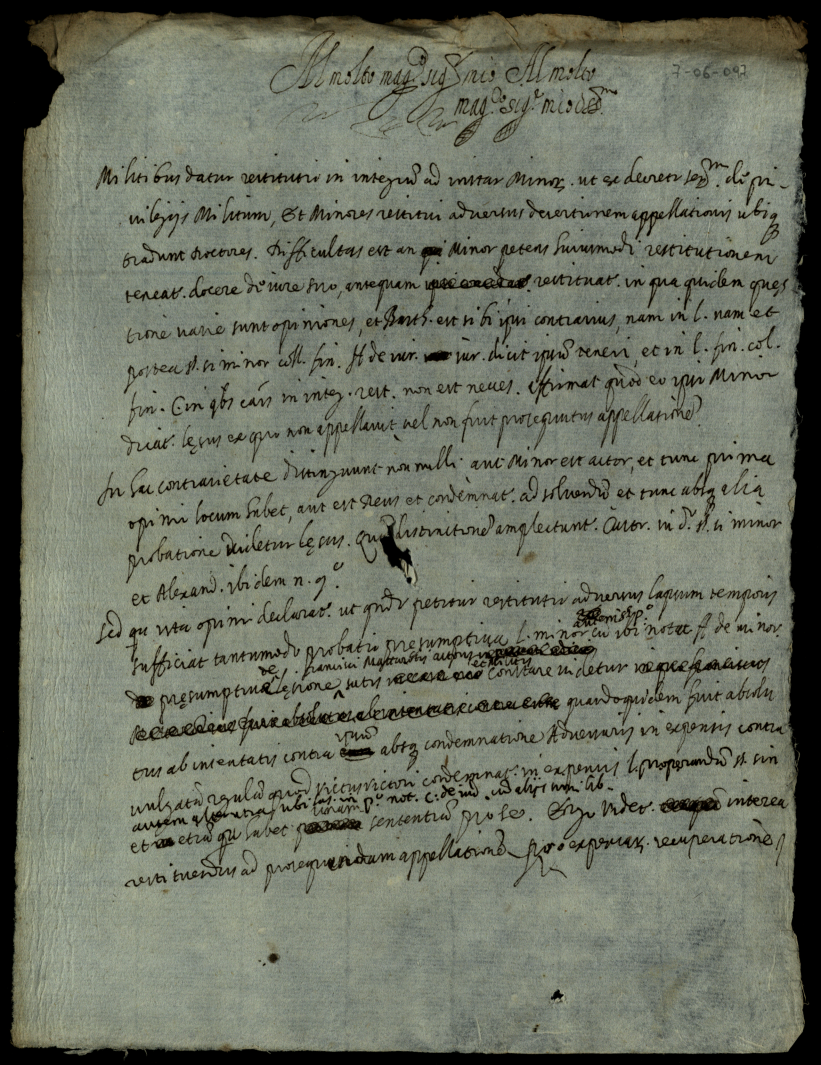 Al molto mag.co sig.r mio Al molto
7-06-097
mag.co sig.r mio
Militibus datur restitutio in integrũ ad instar Minor. ut ex decreto ser.m de pri-
vilegijs Militum, Et Minores restitui adversus desertionem appellationis ubiq
tradunt Doctores. Difficultas est an Minor petens huiusmodi restitutionem
teneat. docere de iure suo, antequam restituat. in qua quidem ques
tione varie sunt opiniones, et Barth. est sibi ipsi contrarius, nam in l. nam et
postea §. si minor coll. fin. ff de iur. iur. dicit ipsũ teneri, et in l. fin. col.
fin. C in qbs caīs in integ. rest. non est neces. affirmat quod eo ipso Minor
dicat. lęsus ex quo non appellavit vel non fuit prosequutus appellationẽ
In hac contrarietate distinguunt nonnulli. aut Minor est actor, et tunc prima
opinio locum habet, aut est Reus et condemnat. ad solvendũ et tunc absq alia
probatione videtur lęsus. Quã distinctionẽ amplectunt. in d. §. si minor
et Alexand. ibidem n. 9.
Sed qu ista opinio declarat. ut qndo petitur restitutio adversus lapsum temporis
sufficiat tantummodo probatio presumptiva l. minor cũ ibi notat. ff de minor.
pręsumptiva lęsione satis constare videtur
quandoquidem fuit absolu
tus ab intentatis contra ipsum absq condemnatione Adversarij in expensis contra
vulgatã regulã quod victus victori condemnat. in expensis l. properandũ §. sin
autem alterutra ubi not. C. de iud.
et etiã qu habet unam sententiã pro se. Ergo videt. interea
restituendus ad prosequendam appellationẽ pro recuperatione